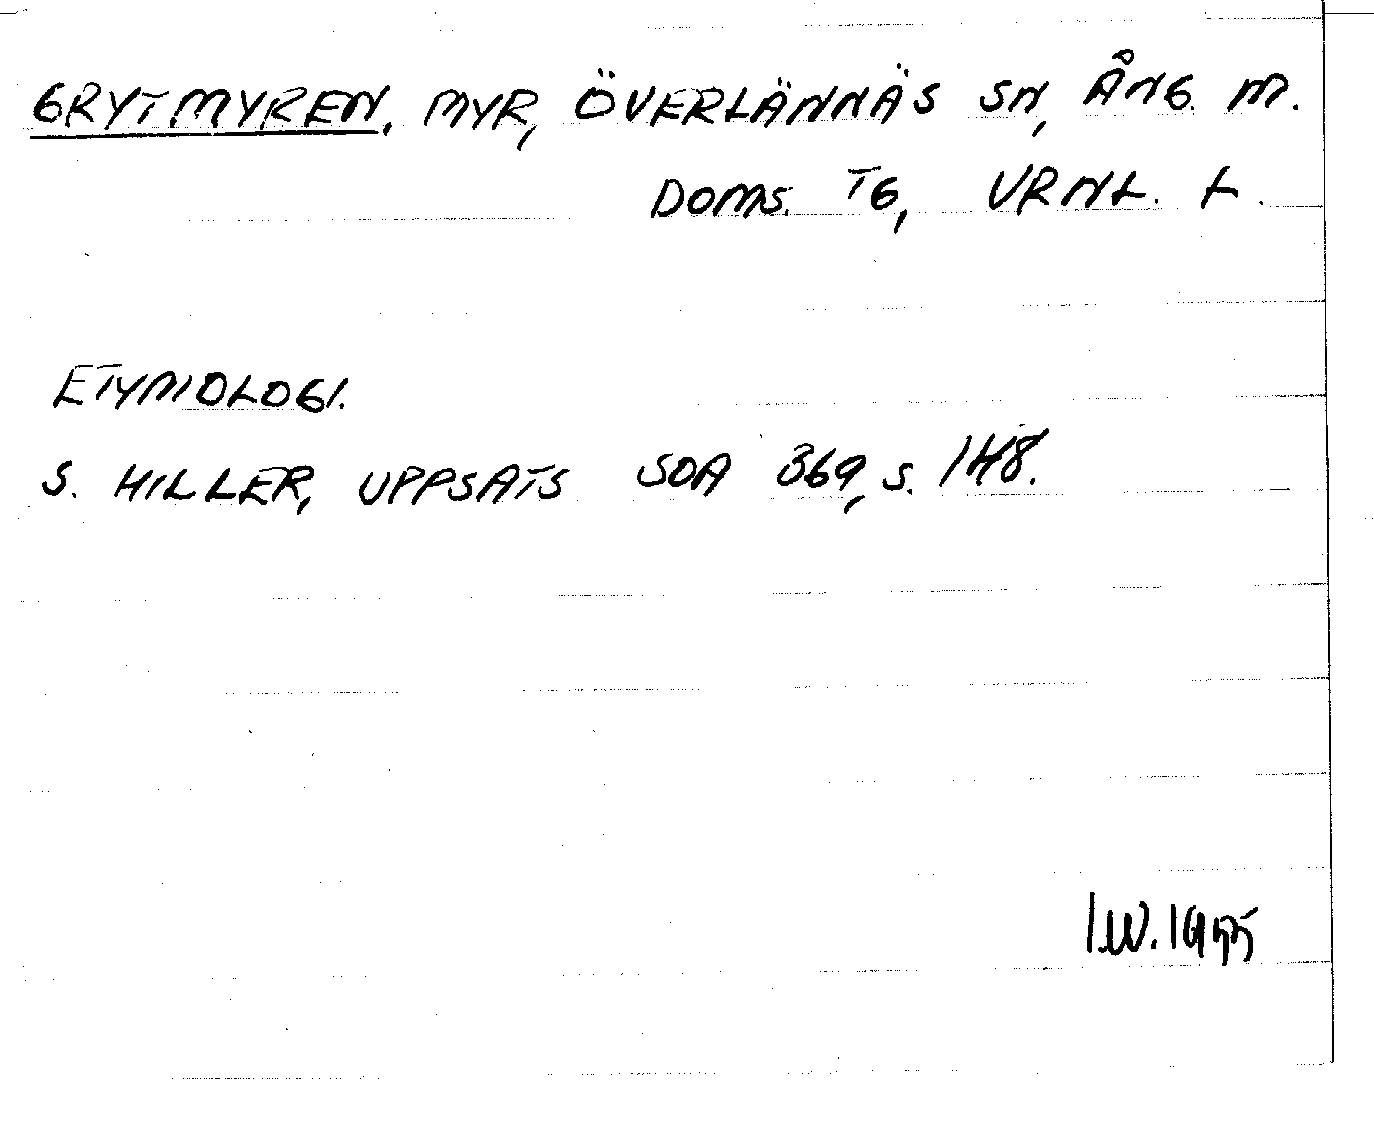 GRYTMYREN, MYR, ÖVERLÄNNÄS SN, ÅNG. M.
DOMS. TG, VRNL. L.
ETYMOLOGI.
S. HILLER, UPPSATS SOA 369, S. 148.
I.W. 1975